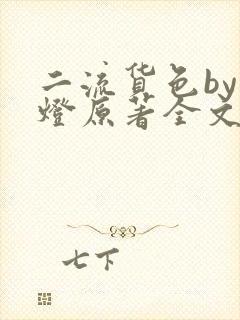 二流货色by
燈原著全文
七下